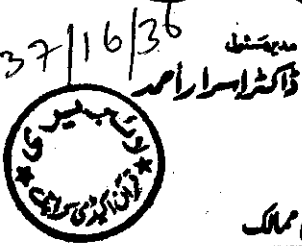 37/16/36
مدیر مسئول
ڈاکٹر اسرار احمد
لائبریری
قرآن اکیڈمی کراچی
ممالک